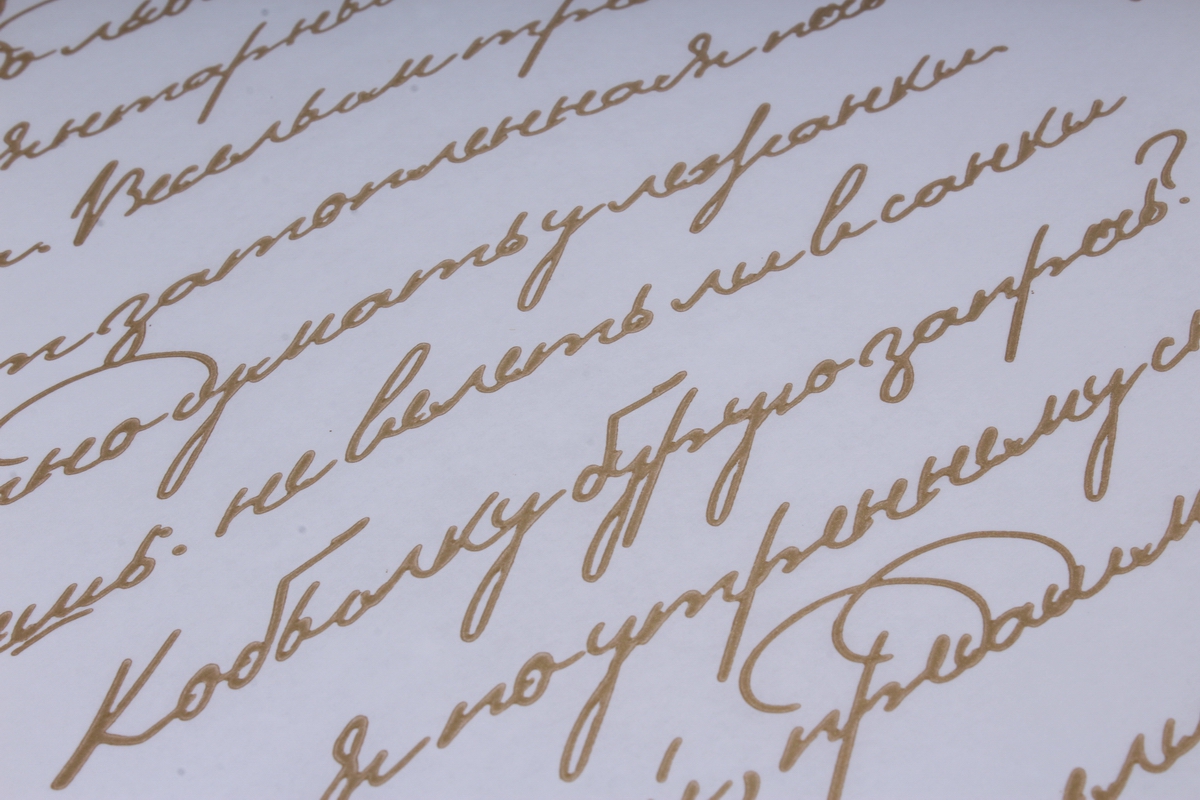 янтарны
. Веселым тре
т затопленная печ
но думать у лежанки.
ешь: не велеть ли в санки
Кобылку бурую запречь?
я по утреннему с
й, предадим